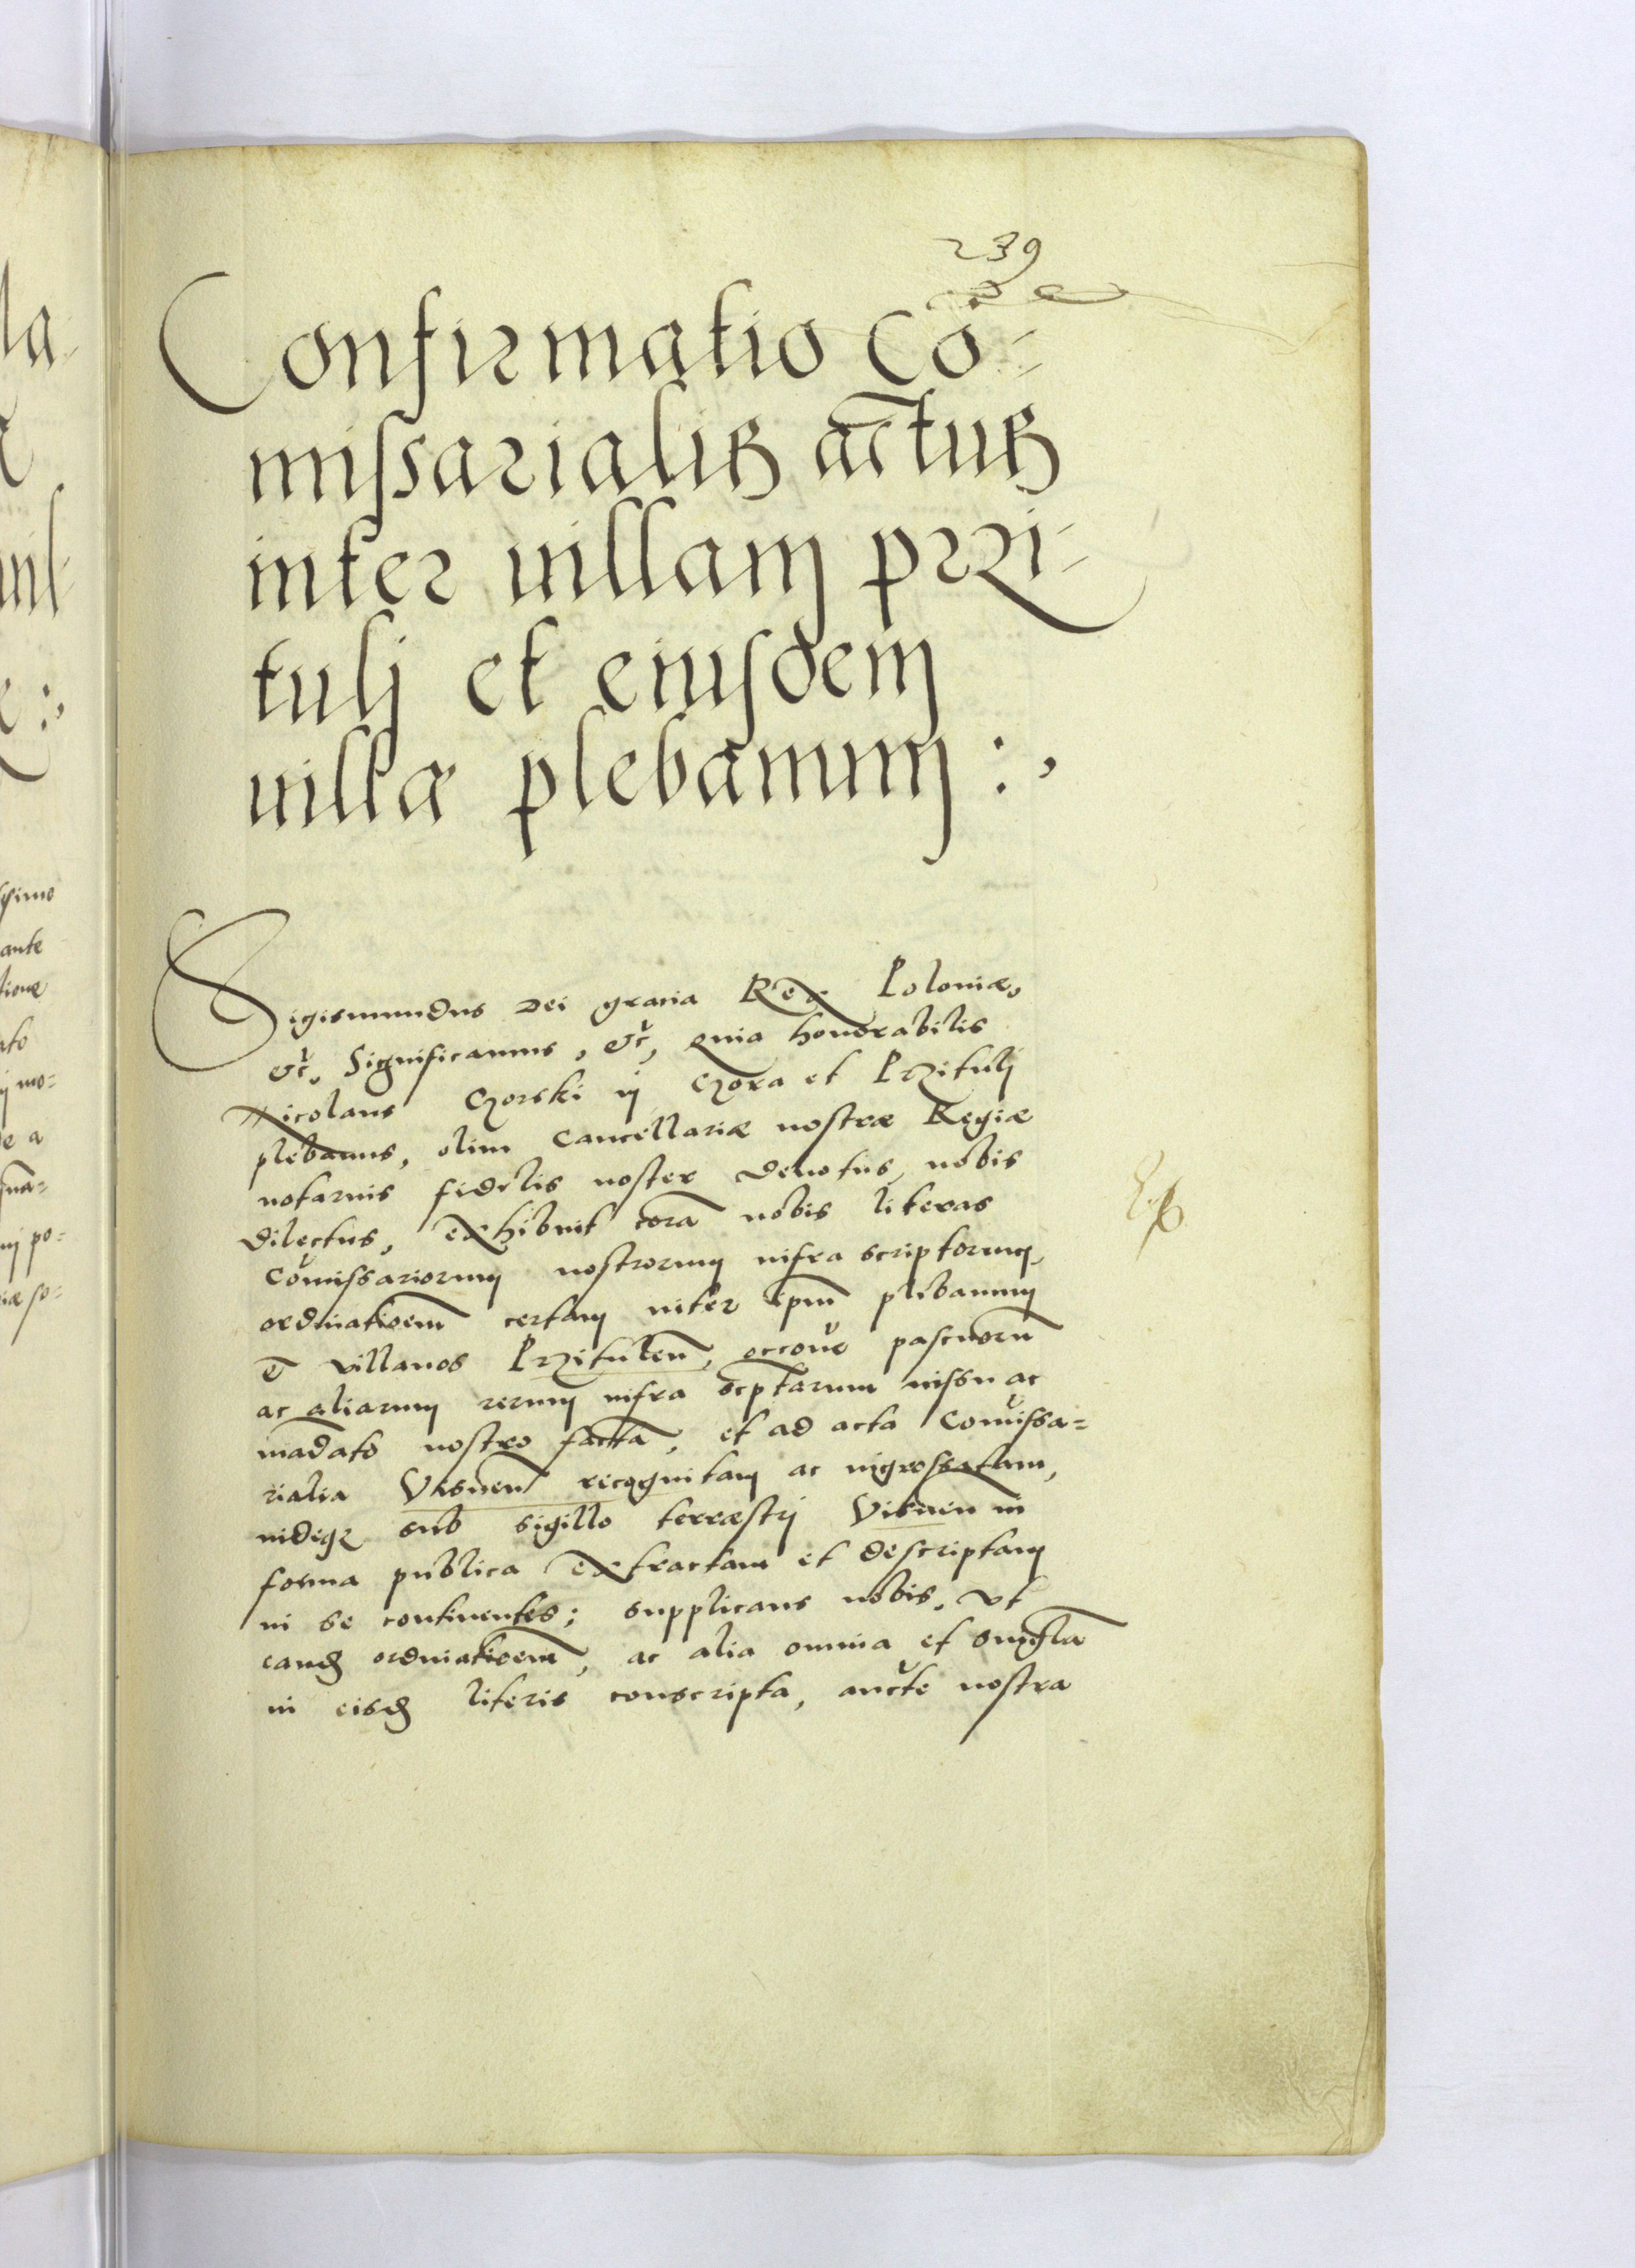 239
Confirmatio Co-
missarialis actus
inter uillam przi-
tulj et eiusdem
uillæ plebanum :,
Sigismundus Dei gratia Rex Poloniæ,
etc̃. Significamus, etc̃, quia honorabilis
Nicolaus Gorski in Gora et Przitulj
plebanus, olim Cancellariæ nostræ Regiæ
notarius fidelis noster deuotus, nobis
dilectus, exhibuit corã nobis literas
Cõmissariorum nostrorum infra scriptorum,
ordinatioem̃ certam inter ipm̃ plebanum
et villanos Przitulen̄, occoñe pascuorũ
ac aliarum rerum infra scptarum iussu ac
mãdato nostro factã, et ad acta Comissa=
rialia Visnen̄ recognitam ac ingrossatam,
indeq3 sub sigillo terræstrj Visnen in
forma publica extractam et descriptam
in se continentes; supplicans nobis, ut
eand ordinatioem̃, ac alia omnia et singĩla
in eisd literis conscripta, aucte nostra
ssimo
ante
tionæ
ato
de a
po=
la-
uil-